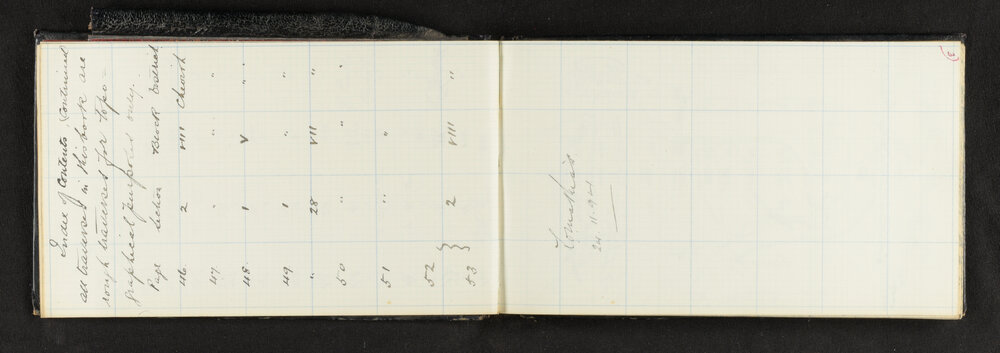 Index of Contents Continued
all traverses in this book are
rough traverses for topo-
graphical purposes only.
Page Section Block District
46 2 VIII Cheviot
47 " " "
48 1 V "
49 1 " "
" 28 VII "
50 " " "
51 " "
52
53 } 2 VIII "
24-11-
3